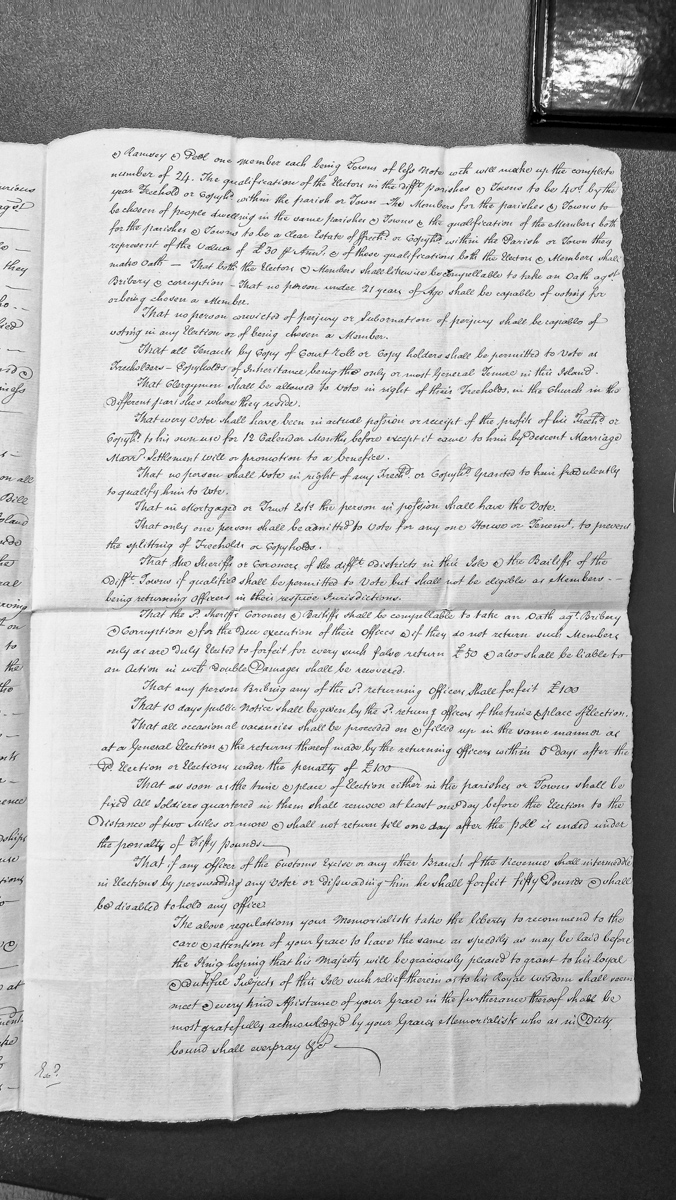 & Ramsey & Peel one Member each being Towns of less Note wch will make up the complete
number of 24. The qualification of the Electors in the difft. parishes & Towns to be 40s. by the
year Freehold or Copyhd. within the parish or Town The Members for the parishes & Towns to
be chosen of people dwelling in the same parishes & Towns & the qualification of the Members both
for the parishes & Towns to be a clear Estate of freehd. or Copyhd. within the Parish or Town they
represent of the Value of £30 p Ann. & of these qualifications both the Electors & Members shall
make Oath — That both the Electors & Members shall likewise be compellable to take an Oath agst.
Bribery & corruption — That no person under 21 years of Age shall be capable of voting for
or being chosen a Member.
That no person convicted of perjury or Subornation of perjury shall be capable of
voting in any Election or of being chosen a Member.
That all Tenants by Copy of Court Roll or Copy holders shall be permitted to Vote as
Freeholders — Copyholds of Inheritance being the only or most General Tenure in this Island.
That Clergymen shall be allowed to Vote in right of their Freeholds, in the Church in the
different parishes where they reside.
That every Voter shall have been in actual possion or receipt of the profits of his Freehd. or
Copyhd. to his own use for 12 Calendar Months before except it came to him by descent Marriage
Marr. Settlement Will or promotion to a benefice.
That no person shall Vote in right of any Freehd. or Copyhd. Granted to him fradulently
to qualify him to Vote.
That in Mortgaged or Trust Ests. the person in possion shall have the Vote.
That only one person shall be admitted to Vote for any one House or Tenemt. to prevent
the splitting of Freeholds or Copyholds.
That the Sheriffs or Coroners of the difft. Districts in this Isle & the Bailiffs of the
difft. Towns if qualified shall be permitted to Vote but shall not be eligible as Members —
being returning Officers in their respive Jurisdictions.
That the sd. Sheriffs Coroners & Bailiffs shall be compellable to take an Oath agt. Bribery
& Corruption & for the Due execution of their Offices & if they do not return such Members
only as are Duly Elected to forfeit for every such false return £50 & also shall be liable to
an Action in wch double Damages shall be recovered.
That any person Bribing any of the sd. returning Officers Shall forfeit £100
That 10 days public Notice shall be given by the sd. returng Officers of the time & place of Election.
That all occasional vacancies shall be proceeded on & filled up in the same manner as
at a General Election & the returns thereof made by the returning Officers within 5 Days after the
sd. Election or Elections under the penalty of £100
That as soon as the time & place of Election either in the parishes or Towns shall be
fixed All Soldiers quartered in them shall remove at least one Day before the Election to the
Distance of two Miles or more & shall not return till one day after the Poll is ended under
the penalty of Fifty pounds —
That if any officer of the Customs Excise or any other Branch of the Revenue shall intermeddle
in Elections by perswading any Voter or disswading him he shall forfeit Fifty Pounds & shall
be disabled to hold any office
The above regulations your Memorialists take the liberty to recommend to the
care & attention of your Grace to have the same as speedily as may be laid before
the King hoping that his Majesty will be graciously pleased to grant to his loyal
& dutiful Subjects of this Isle such relief therein as to his Royal wisdom shall seem
meet & every kind Assistance of your Grace in the furtherance thereof shall be
most gratefully acknowledged by your Graces Memorialists who as in Duty
bound shall ever pray &c —